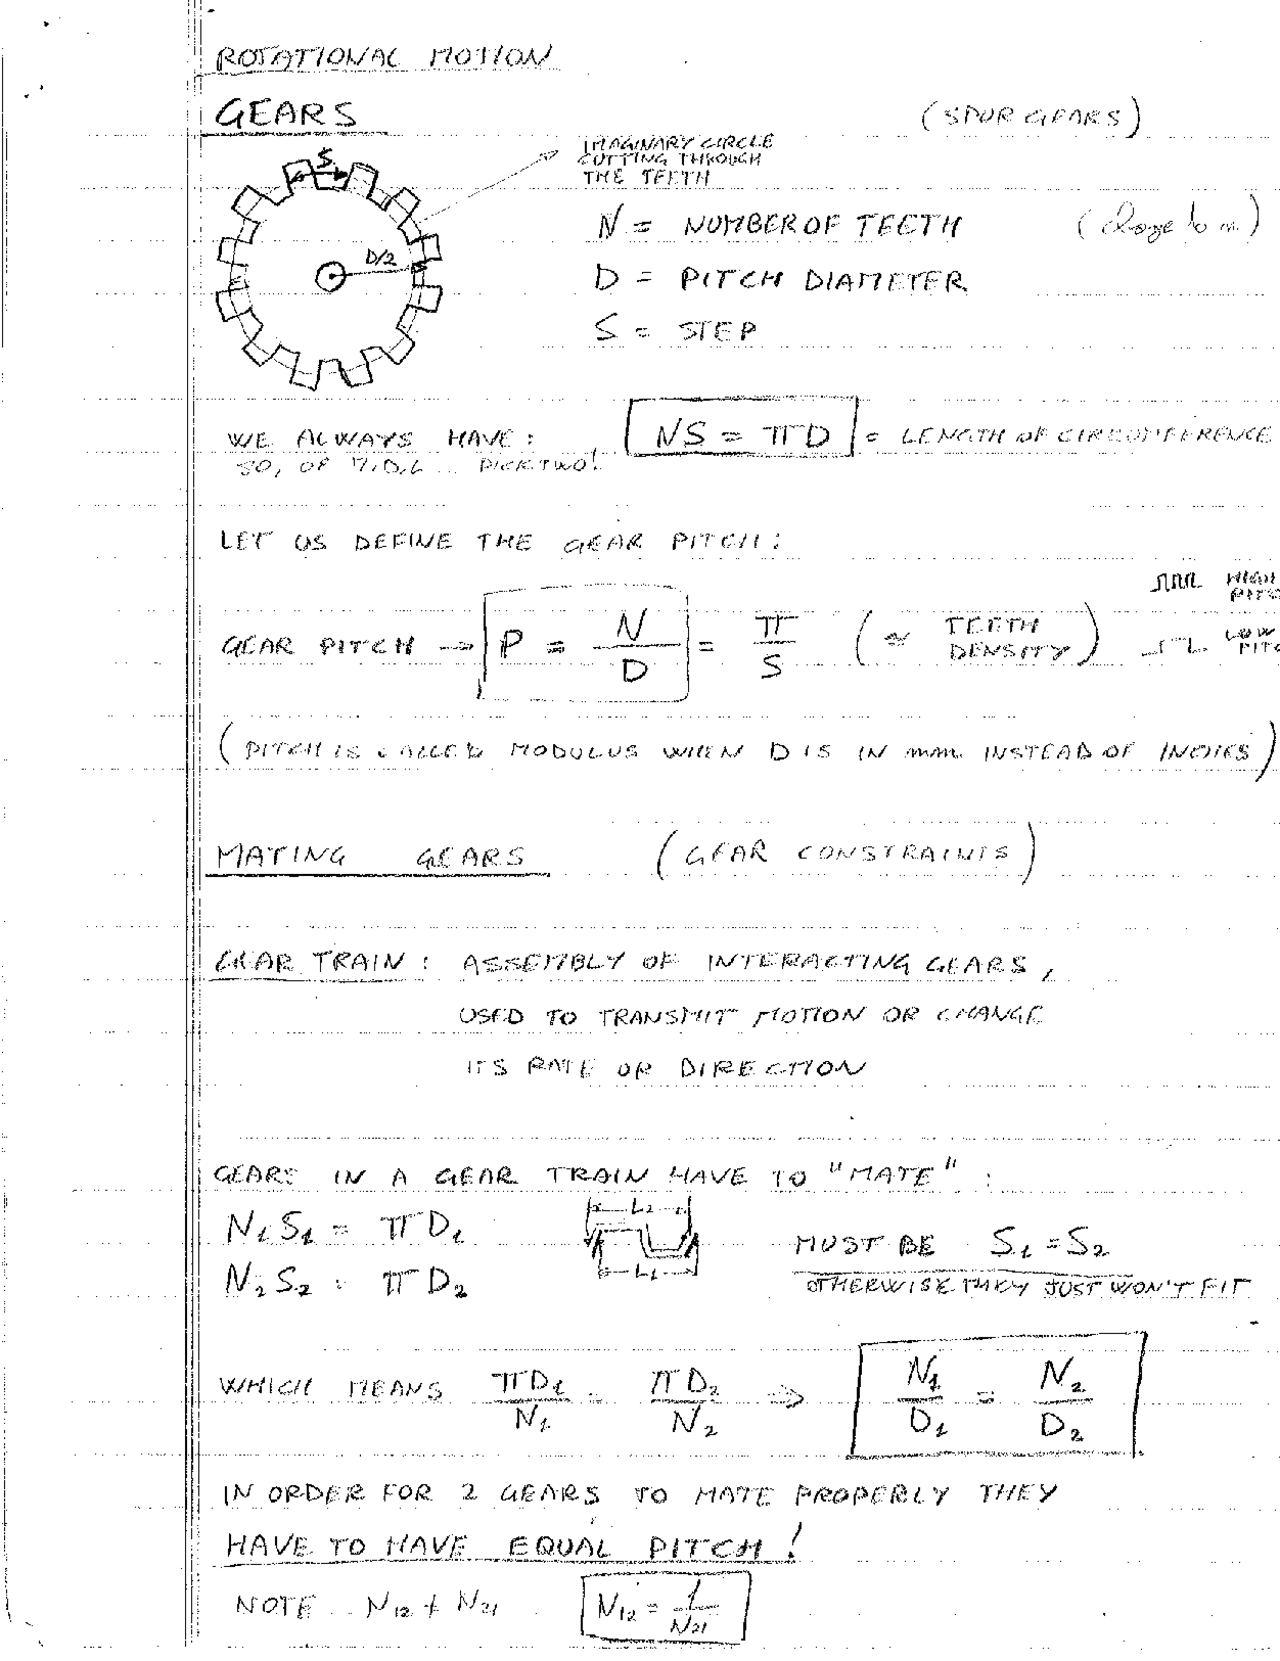 ROTATIONAL MOTION
GEARS (SPUR GEARS)
IMAGINARY CIRCLE
CUTTING THROUGH
THE TEETH
S
D/2
N = NUMBER OF TEETH (change to n)
D = PITCH DIAMETER
S = STEP
WE ALWAYS HAVE: NS = πD = LENGTH OF CIRCUMFERENCE
SO, OF PICK TWO!
LET US DEFINE THE GEAR PITCH:
HIGH
GEAR PITCH → P = N/D = π/S (≈ TEETH DENSITY) LOW
(PITCH IS CALLED MODULUS WHEN D IS IN mm INSTEAD OF INCHES)
MATING GEARS (GEAR CONSTRAINTS)
GEAR TRAIN: ASSEMBLY OF INTERACTING GEARS,
USED TO TRANSMIT MOTION OR CHANGE
ITS RATE OR DIRECTION
GEARS IN A GEAR TRAIN HAVE TO "MATE" :
N₁S₁ = πD₁ L₂ MUST BE S₁ = S₂
N₂S₂ = πD₂ L₁ OTHERWISE THEY JUST WON'T FIT
WHICH MEANS πD₁/N₁ = πD₂/N₂ ⇒ N₁/D₁ = N₂/D₂
IN ORDER FOR 2 GEARS TO MATE PROPERLY THEY
HAVE TO HAVE EQUAL PITCH!
NOTE N₁₂ ≠ N₂₁ N₁₂ = 1/N₂₁